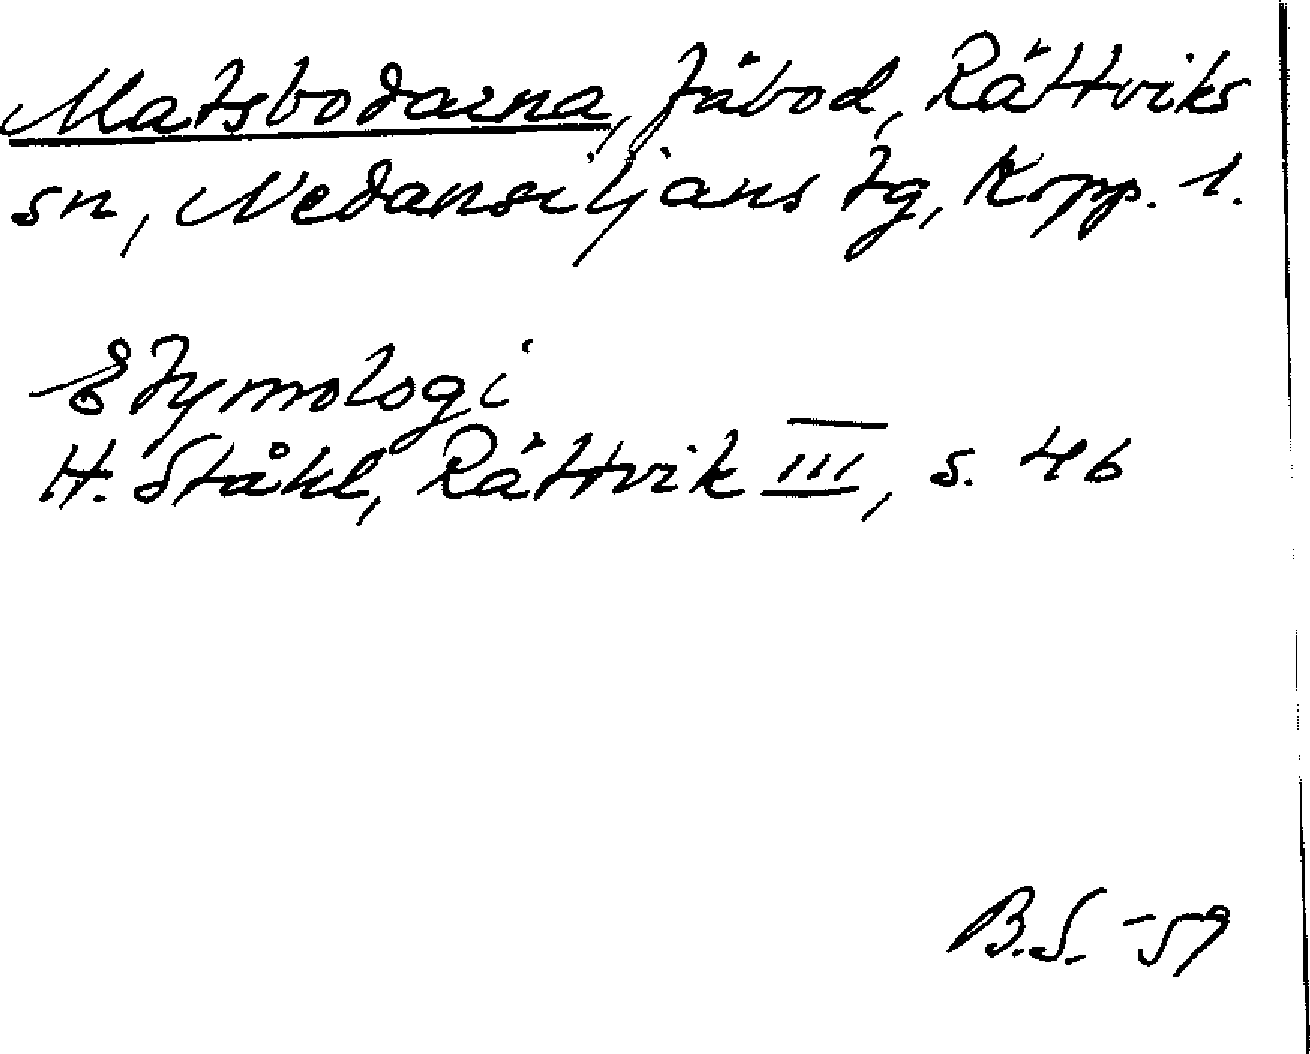 Matsbodarna, fäbod, Rättviks
sn, Nedansiljans tg, Kopp. l.
Etymologi
H. Ståhl, Rättvik III, s. 46
B.S. -59